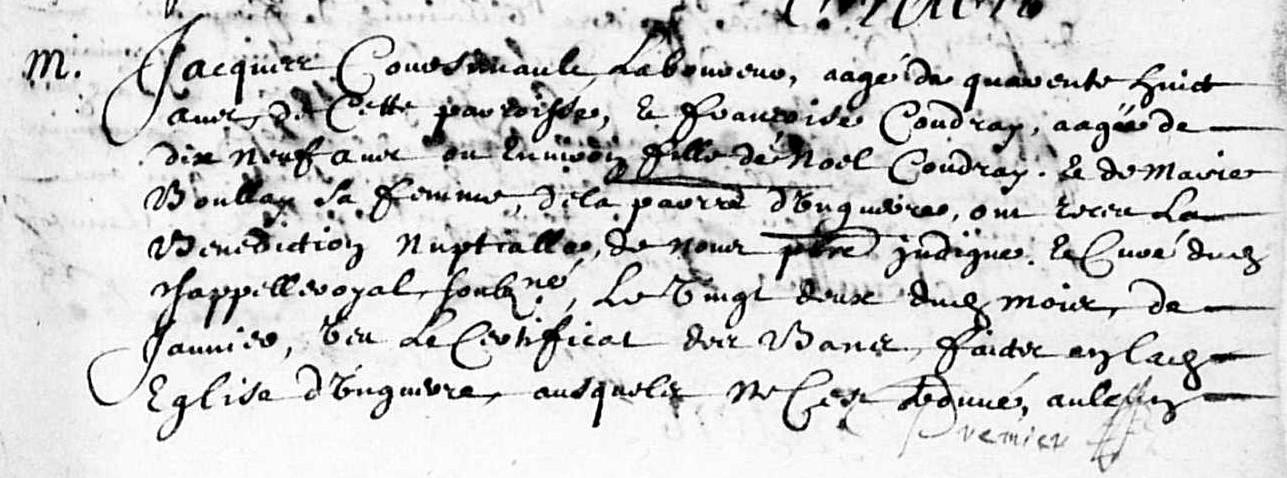 m. Jacques Cousinault Laboureur, aagé de quarente huict
ans, de Cette parroisse, & francoise Coudray, aagée de
dix neuf ans ou Environ fille de Noel Coudray. & de Marie
Boullay sa femme, de la parrse d'Ingueure, ont receu La
Benediction Nuptialle, de nous pbre indigne. & Curé dud
Chappelleroyal, soubzné, Le Vingt deux dud mois, de
Janvier, Veu Le Certificat des Bans, faictes en lad
Eglise d'Ingueure, ausquels Ne Cest
Premier